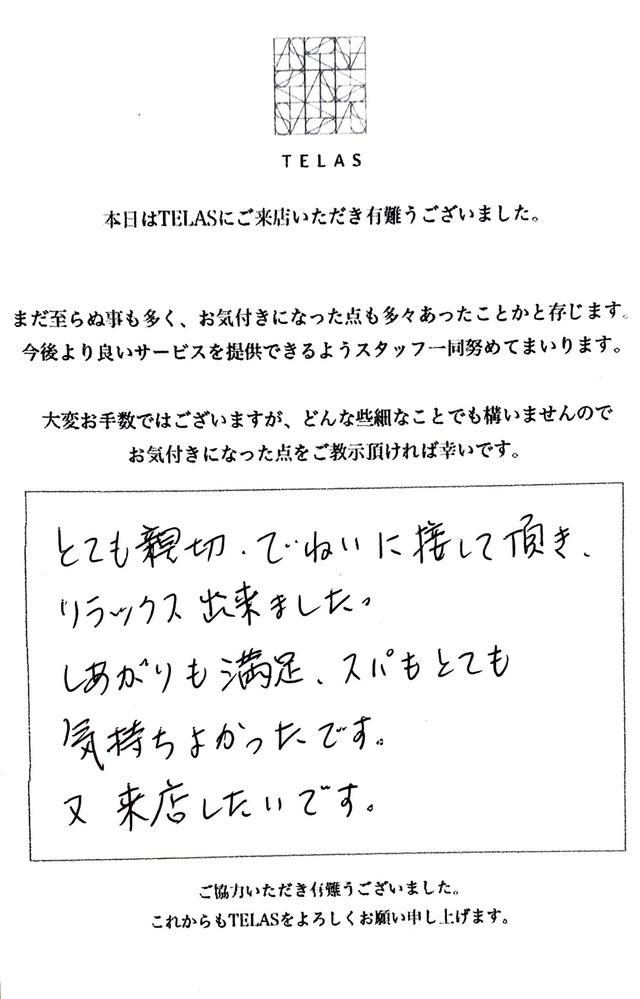 TELAS
本日はTELASにご来店いただき有難うございました。
まだ至らぬ事も多く、お気付きになった点も多々あったことかと存じます。
今後より良いサービスを提供できるようスタッフ一同努めてまいります。
大変お手数ではございますが、どんな些細なことでも構いませんので
お気付きになった点をご教示頂ければ幸いです。
とても親切・でいねいに接して頂き、
リラックス出来ました。
しあがりも満足、スパもとても
気持ちよかったです。
又来店したいです。
ご協力いただき有難うございました。
これからもTELASをよろしくお願い申し上げます。